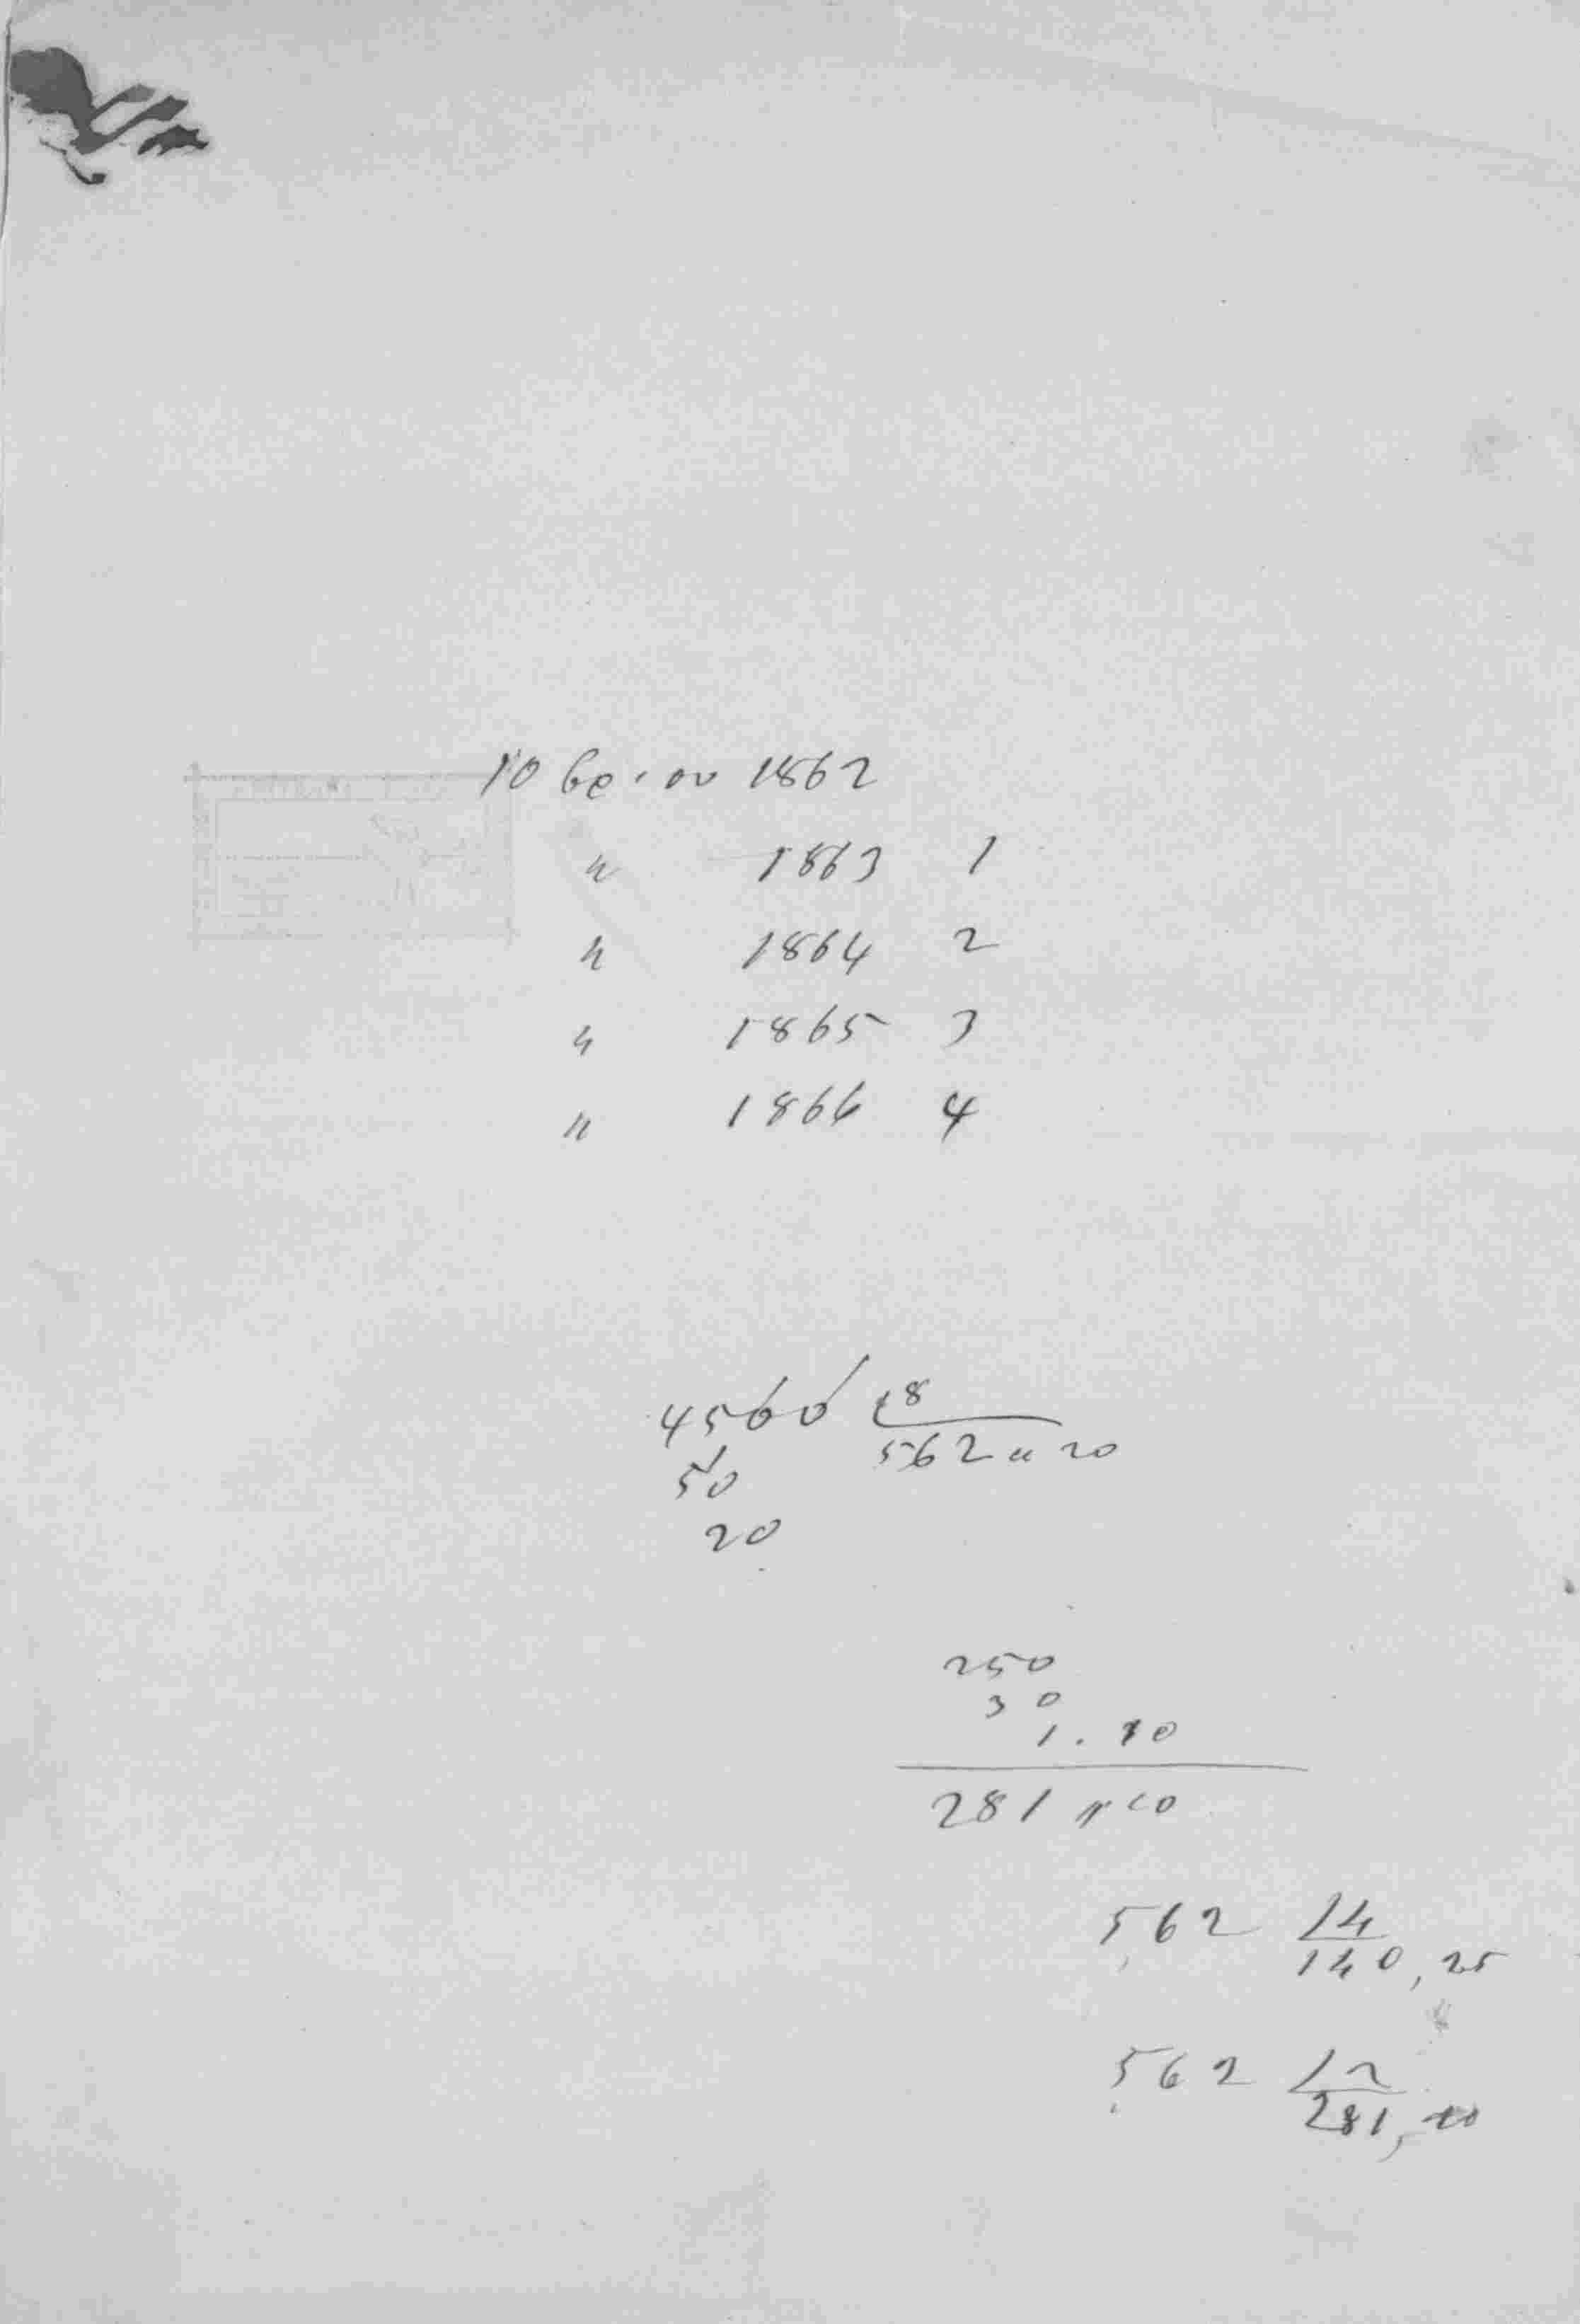 10 be. ou 1862
" 1863 1
" 1864 2
" 1865 3
" 1866 4
4560 8
562 " 20
50
20
250
30
1.10
281 " 10
562 14
140,25
562 12
281, 10